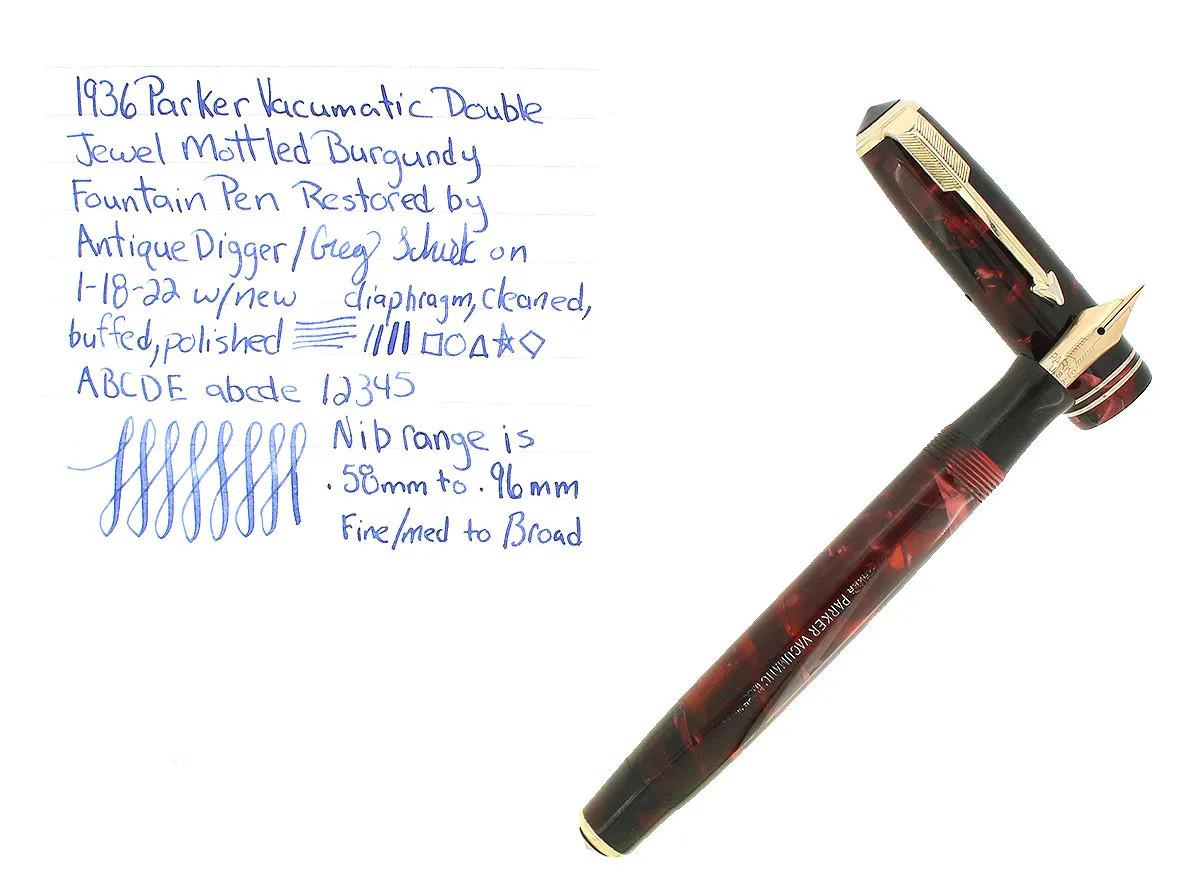 1936 Parker Vacumatic Double
Jewel Mottled Burgundy
Fountain Pen Restored by
Antique Digger/Greg on
1-18-22 w/new diaphragm, cleaned,
buffed, polished
ABCDE abcde 12345
Nib range is
.58mm to .96mm
Fine/med to Broad
PARKER VACUMATIC